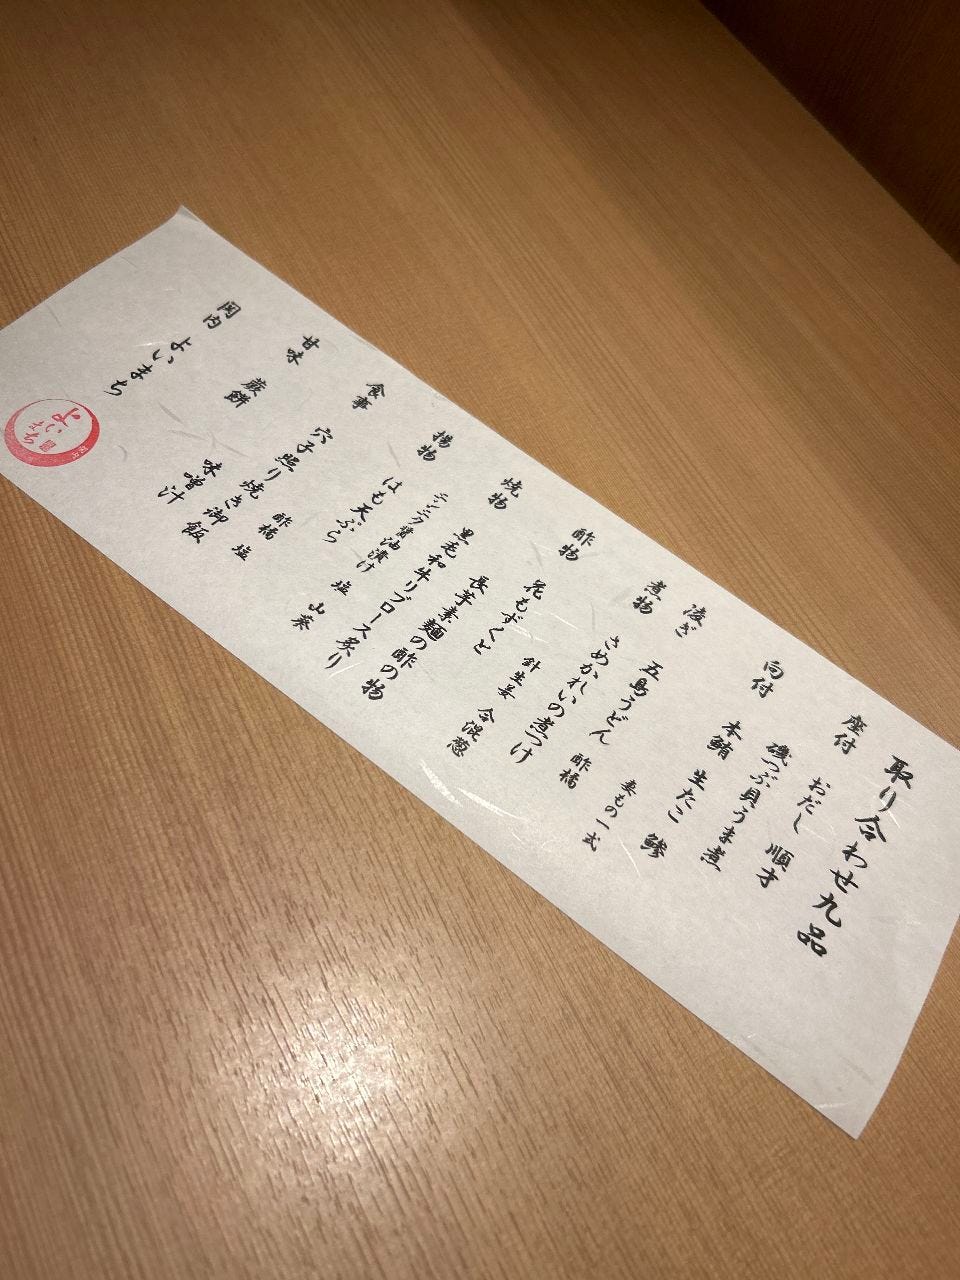 取り合わせ九品
座付 おだし 順才
磯つぶ貝うま煮
向付 本鮪 生たこ 鯵
妻もの一式
凌ぎ 五島うどん 酢橘
煮物 さめかれいの煮つけ
針生姜 合混葱
酢物 花もずくと
長芋素麺の酢の物
焼物 黒毛和牛リブロース炙り
ニンニク醤油漬け 塩 山葵
揚物 はも天ぷら 酢橘 塩
食事 穴子照り焼き御飯
味噌汁
甘味 蕨餅
岡内 よいまち
よい
まち